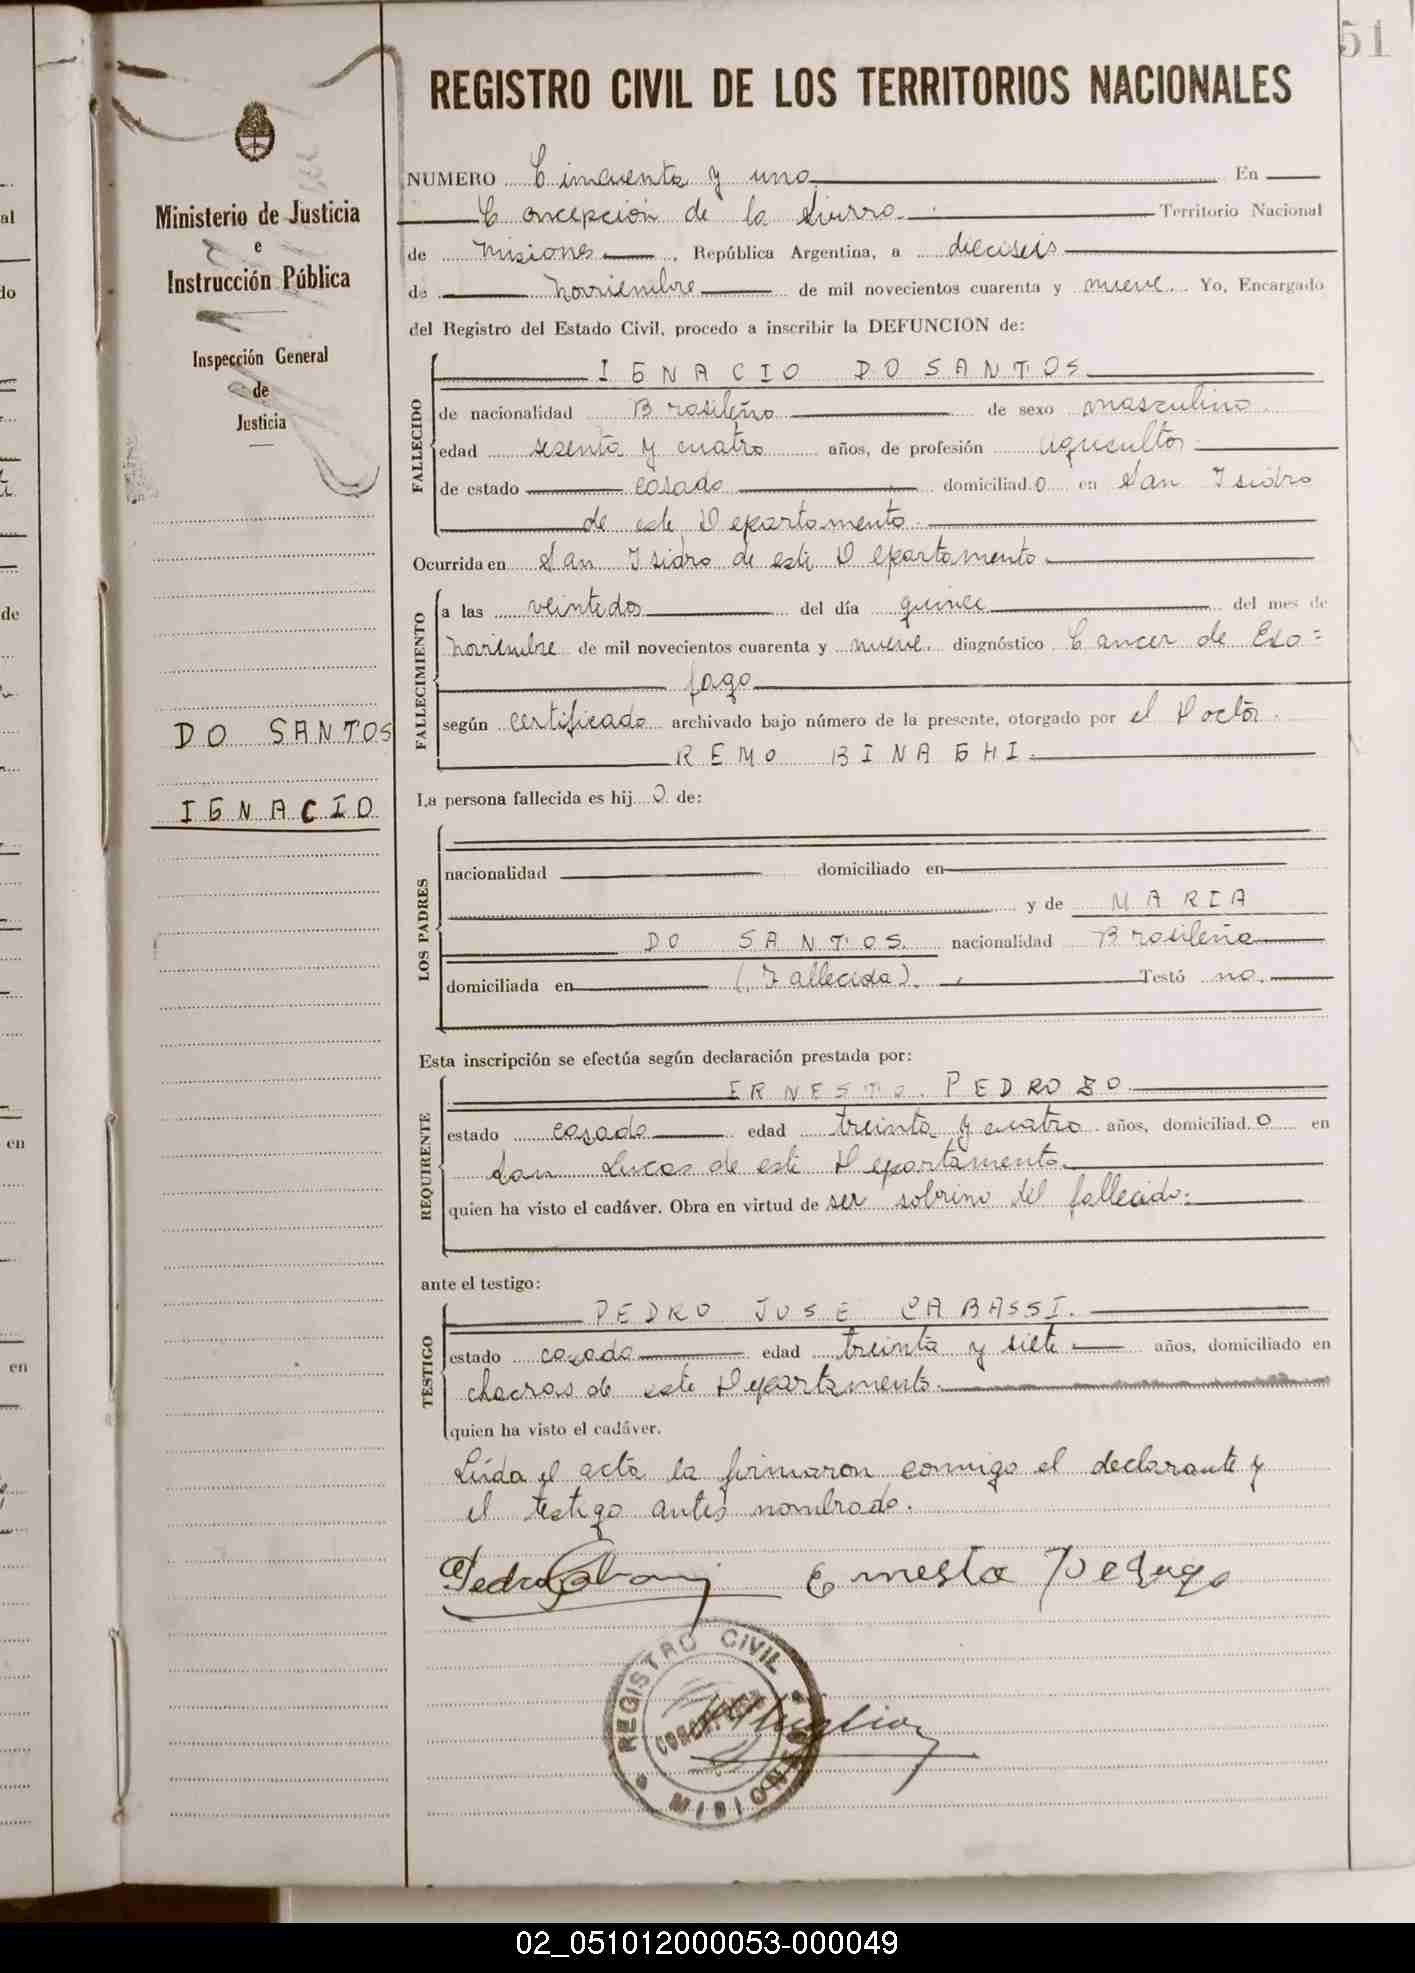 51
REGISTRO CIVIL DE LOS TERRITORIOS NACIONALES
Ministerio de Justicia
e
Instrucción Pública
Inspección General
de
Justicia
DO SANTOS
IGNACIO
NUMERO Cincuenta y uno En
Concepción de la Sierra Territorio Nacional
de Misiones, República Argentina, a dieciseis
de Noviembre de mil novecientos cuarenta y nueve. Yo, Encargado
del Registro del Estado Civil, procedo a inscribir la DEFUNCION de:
FALLECIDO
IGNACIO DO SANTOS
de nacionalidad Brasileño de sexo masculino.
edad sesenta y cuatro años, de profesión agricultor
de estado casado domiciliado en San Isidro
de este Departamento.
Ocurrida en San Isidro de este Departamento.
FALLECIMIENTO
a las veintedos del día quince del mes de
Noviembre de mil novecientos cuarenta y nueve. diagnóstico Cancer de Eso=
fago
según certificado archivado bajo número de la presente, otorgado por el Doctor
REMO BINAGHI.
La persona fallecida es hijo de:
LOS PADRES
nacionalidad domiciliado en
y de MARIA
DO SANTOS. nacionalidad Brasileña
domiciliada en (Fallecida). Testó no.
Esta inscripción se efectúa según declaración prestada por:
REQUIRENTE
ERNESTO PEDROZO
estado casado edad treinta y cuatro años, domiciliado en
San Lucas de este Departamento.
quien ha visto el cadáver. Obra en virtud de ser sobrino del fallecido.
ante el testigo:
TESTIGO
PEDRO JOSE CABASSI.
estado casado edad treinta y siete años, domiciliado en
chacras de este Departamento.
quien ha visto el cadáver.
Leída el acta la firmaron conmigo el declarante y
el testigo antes nombrado.
Pedro Ernesto
REGISTRO CIVIL
MISIONES
02_051012000053-000049